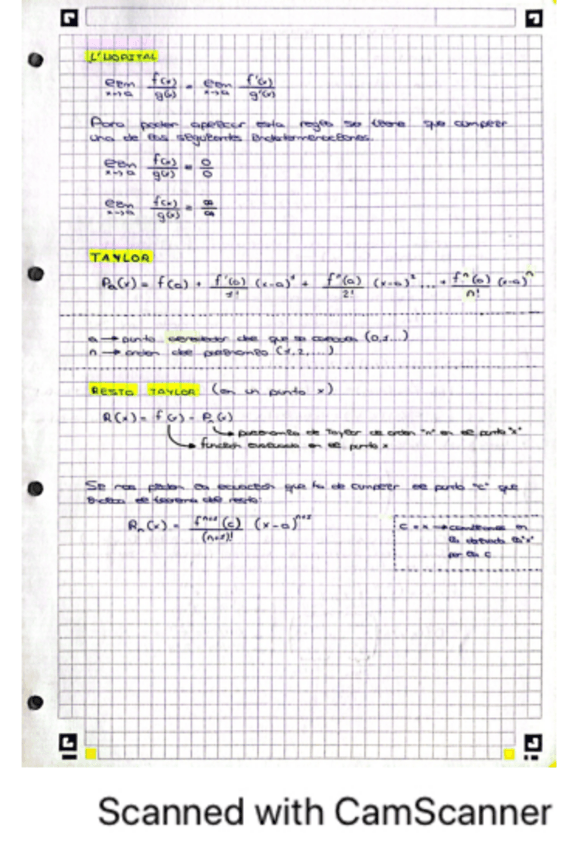 L'HOPITAL
lim x→a f(x)/g(x) = lim x→a f'(x)/g'(x)
Para poder aplicar esta regla se tiene que cumplir
una de las siguientes indeterminaciones.
lim x→a f(x)/g(x) = 0/0
lim x→a f(x)/g(x) = ∞/∞
TAYLOR
Pₙ(x) = f(a) + f'(a)/1! (x-a)¹ + f''(a)/2! (x-a)² ... + fⁿ(a)/n! (x-a)ⁿ
a → punto alrededor del que se (0,1...)
n → orden del polinomio (1,2,...)
RESTO TAYLOR (en un punto x)
R(x) = f(x) - Pₙ(x)
→ polinomio de Taylor de orden "n" en el punto "x"
→ función evaluada en el punto x
Se nos piden la ecuación que ha de cumplir el punto "c" que
indica el teorema del resto:
Rₙ(x) = fⁿ⁺¹(c)/(n+1)! (x-a)ⁿ⁺¹
c = x → cambiamos en
la derivada la "x"
por la c
Scanned with CamScanner